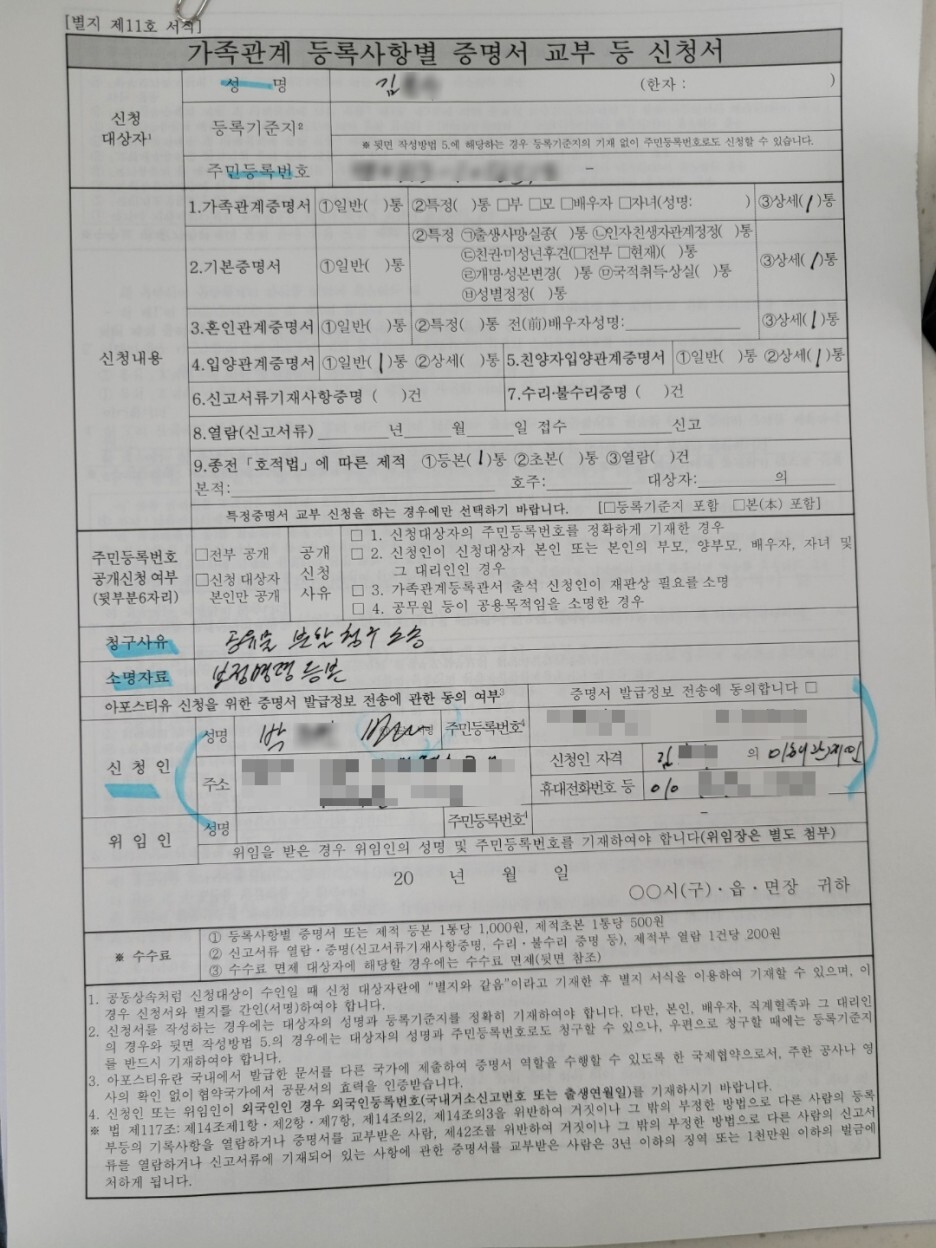 [별지 제11호 서식]
가족관계 등록사항별 증명서 교부 등 신청서
신청
대상자1
성 명
김
(한자 : )
등록기준지2
※ 뒷면 작성방법 5.에 해당하는 경우 등록기준지의 기재 없이 주민등록번호로도 신청할 수 있습니다.
주민등록번호
-
신청내용
1.가족관계증명서 ①일반( )통 ②특정( )통 □부 □모 □배우자 □자녀(성명: ) ③상세(1)통
2.기본증명서 ①일반( )통
②특정 ㉠출생사망실종( )통 ㉡인지친생자관계정정( )통
㉢친권·미성년후견(□전부 □현재)( )통
㉣개명·성본변경( )통 ㉤국적취득·상실( )통
㉥성별정정( )통
③상세(1)통
3.혼인관계증명서 ①일반( )통 ②특정( )통 전(前)배우자성명: ③상세(1)통
4.입양관계증명서 ①일반(1)통 ②상세( )통 5.친양자입양관계증명서 ①일반( )통 ②상세(1)통
6.신고서류기재사항증명 ( )건 7.수리·불수리증명 ( )건
8.열람(신고서류) 년 월 일 접수 신고
9.종전「호적법」에 따른 제적 ①등본(1)통 ②초본( )통 ③열람( )건
본적: 호주: 대상자: 의
특정증명서 교부 신청을 하는 경우에만 선택하기 바랍니다. [□등록기준지 포함 □본(本) 포함]
주민등록번호
공개신청 여부
(뒷부분6자리)
□전부 공개
□신청 대상자
본인만 공개
공개
신청
사유
□ 1. 신청대상자의 주민등록번호를 정확하게 기재한 경우
□ 2. 신청인이 신청대상자 본인 또는 본인의 부모, 양부모, 배우자, 자녀 및
그 대리인인 경우
□ 3. 가족관계등록관서 출석 신청인이 재판상 필요를 소명
□ 4. 공무원 등이 공용목적임을 소명한 경우
청구사유 공유물 분할청구 소송
소명자료 보정명령 등본
아포스티유 신청을 위한 증명서 발급정보 전송에 관한 동의 여부3 증명서 발급정보 전송에 동의합니다 □
신 청 인
성명 박 주민등록번호4
주소
신청인 자격 김 의 이해관계인
휴대전화번호 등 010
위 임 인
성명 주민등록번호4 -
위임을 받은 경우 위임인의 성명 및 주민등록번호를 기재하여야 합니다(위임장은 별도 첨부)
20 년 월 일
○○시(구)·읍·면장 귀하
※ 수수료
① 등록사항별 증명서 또는 제적 등본 1통당 1,000원, 제적초본 1통당 500원
② 신고서류 열람·증명(신고서류기재사항증명, 수리·불수리 증명 등), 제적부 열람 1건당 200원
③ 수수료 면제 대상자에 해당할 경우에는 수수료 면제(뒷면 참조)
1. 공동상속처럼 신청대상이 수인일 때 신청 대상자란에 “별지와 같음”이라고 기재한 후 별지 서식을 이용하여 기재할 수 있으며, 이
경우 신청서와 별지를 간인(서명)하여야 합니다.
2. 신청서를 작성하는 경우에는 대상자의 성명과 등록기준지를 정확히 기재하여야 합니다. 다만, 본인, 배우자, 직계혈족과 그 대리인
의 경우와 뒷면 작성방법 5.의 경우에는 대상자의 성명과 주민등록번호로도 청구할 수 있으나, 우편으로 청구할 때에는 등록기준지
를 반드시 기재하여야 합니다.
3. 아포스티유란 국내에서 발급한 문서를 다른 국가에 제출하여 증명서 역할을 수행할 수 있도록 한 국제협약으로서, 주한 공사나 영
사의 확인 없이 협약국가에서 공문서의 효력을 인증받습니다.
4. 신청인 또는 위임인이 외국인인 경우 외국인등록번호(국내거소신고번호 또는 출생연월일)를 기재하시기 바랍니다.
※ 법 제117조: 제14조제1항·제2항·제7항, 제14조의2, 제14조의3을 위반하여 거짓이나 그 밖의 부정한 방법으로 다른 사람의 등록
부등의 기록사항을 열람하거나 증명서를 교부받은 사람, 제42조를 위반하여 거짓이나 그 밖의 부정한 방법으로 다른 사람의 신고서
류를 열람하거나 신고서류에 기재되어 있는 사항에 관한 증명서를 교부받은 사람은 3년 이하의 징역 또는 1천만원 이하의 벌금에
처하게 됩니다.